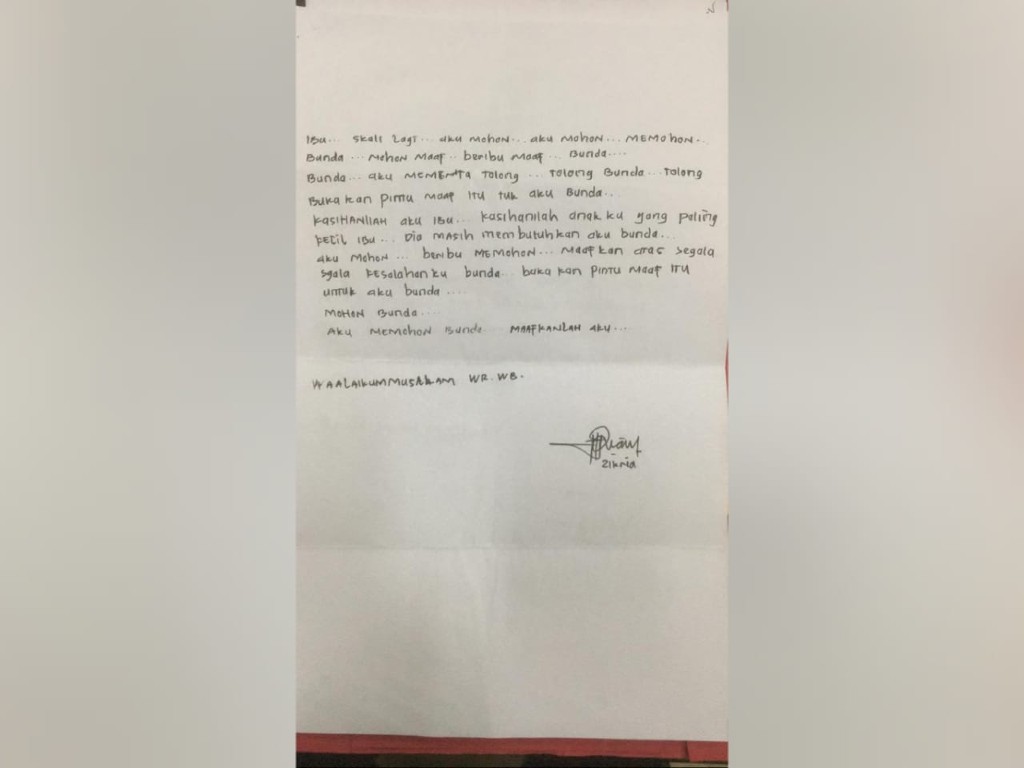 IBU... Skali Lagi... aku MOHON... aku MOHON... MEMOHON..
Bunda... MOHON MAAF.. beribu MAAF... Bunda....
Bunda... aku MEMENTA Tolong... Tolong Bunda... Tolong
BUKA KAN PINTU MAAF ITU TUK AKU BUNDA...
KASIHANLIAH aku IBU... Kasihanilah anak ku yang paling
KECIL IBU... Dia MASIH membutuhkan aku bunda...
aku MOHON... beribu MEMOHON... MAAFKAN atas segala
sgala KESALAHANKU bunda... buka kan PINTU MAAF ITU
UNTUK aku bunda....
MOHON Bunda....
AKU MEMOHON Bunda MAAFKANLAH AKU...
WAALAIKUMMUSALAM WR. WB.
Zikria